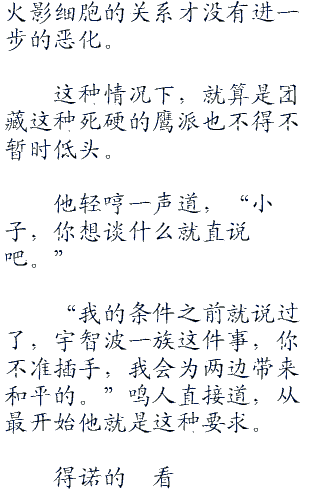 火影细胞的关系才没有进一
步的恶化。
这种情况下，就算是团
藏这种死硬的鹰派也不得不
暂时低头。
他轻哼一声道，“小
子，你想谈什么就直说
吧。”
“我的条件之前就说过
了，宇智波一族这件事，你
不准插手，我会为两边带来
和平的。”鸣人直接道，从
最开始他就是这种要求。
得诺的　看